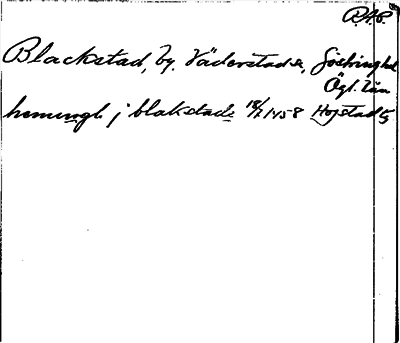 R.A.P.
Blackstad, by. Väderstad sn, Göstringhd
Ögl. län
hemingh j blakstade 18/7 1458 Hogstad 5